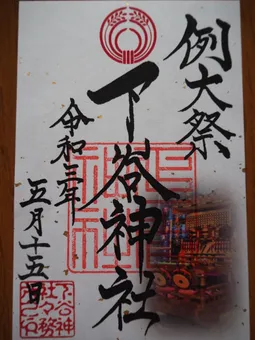 例大祭
下谷神社
令和三年
五月十五日